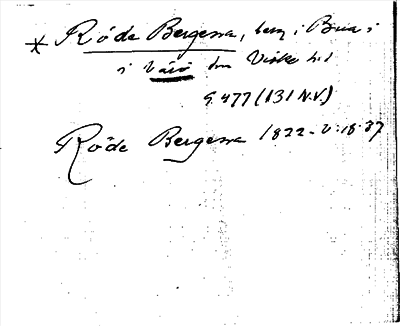 * Röde Bergessa, berg i Bua i
i Värö sn Viske hd
S. 477 (131 N.V.)
Röde Bergessa 1822-2:18:37